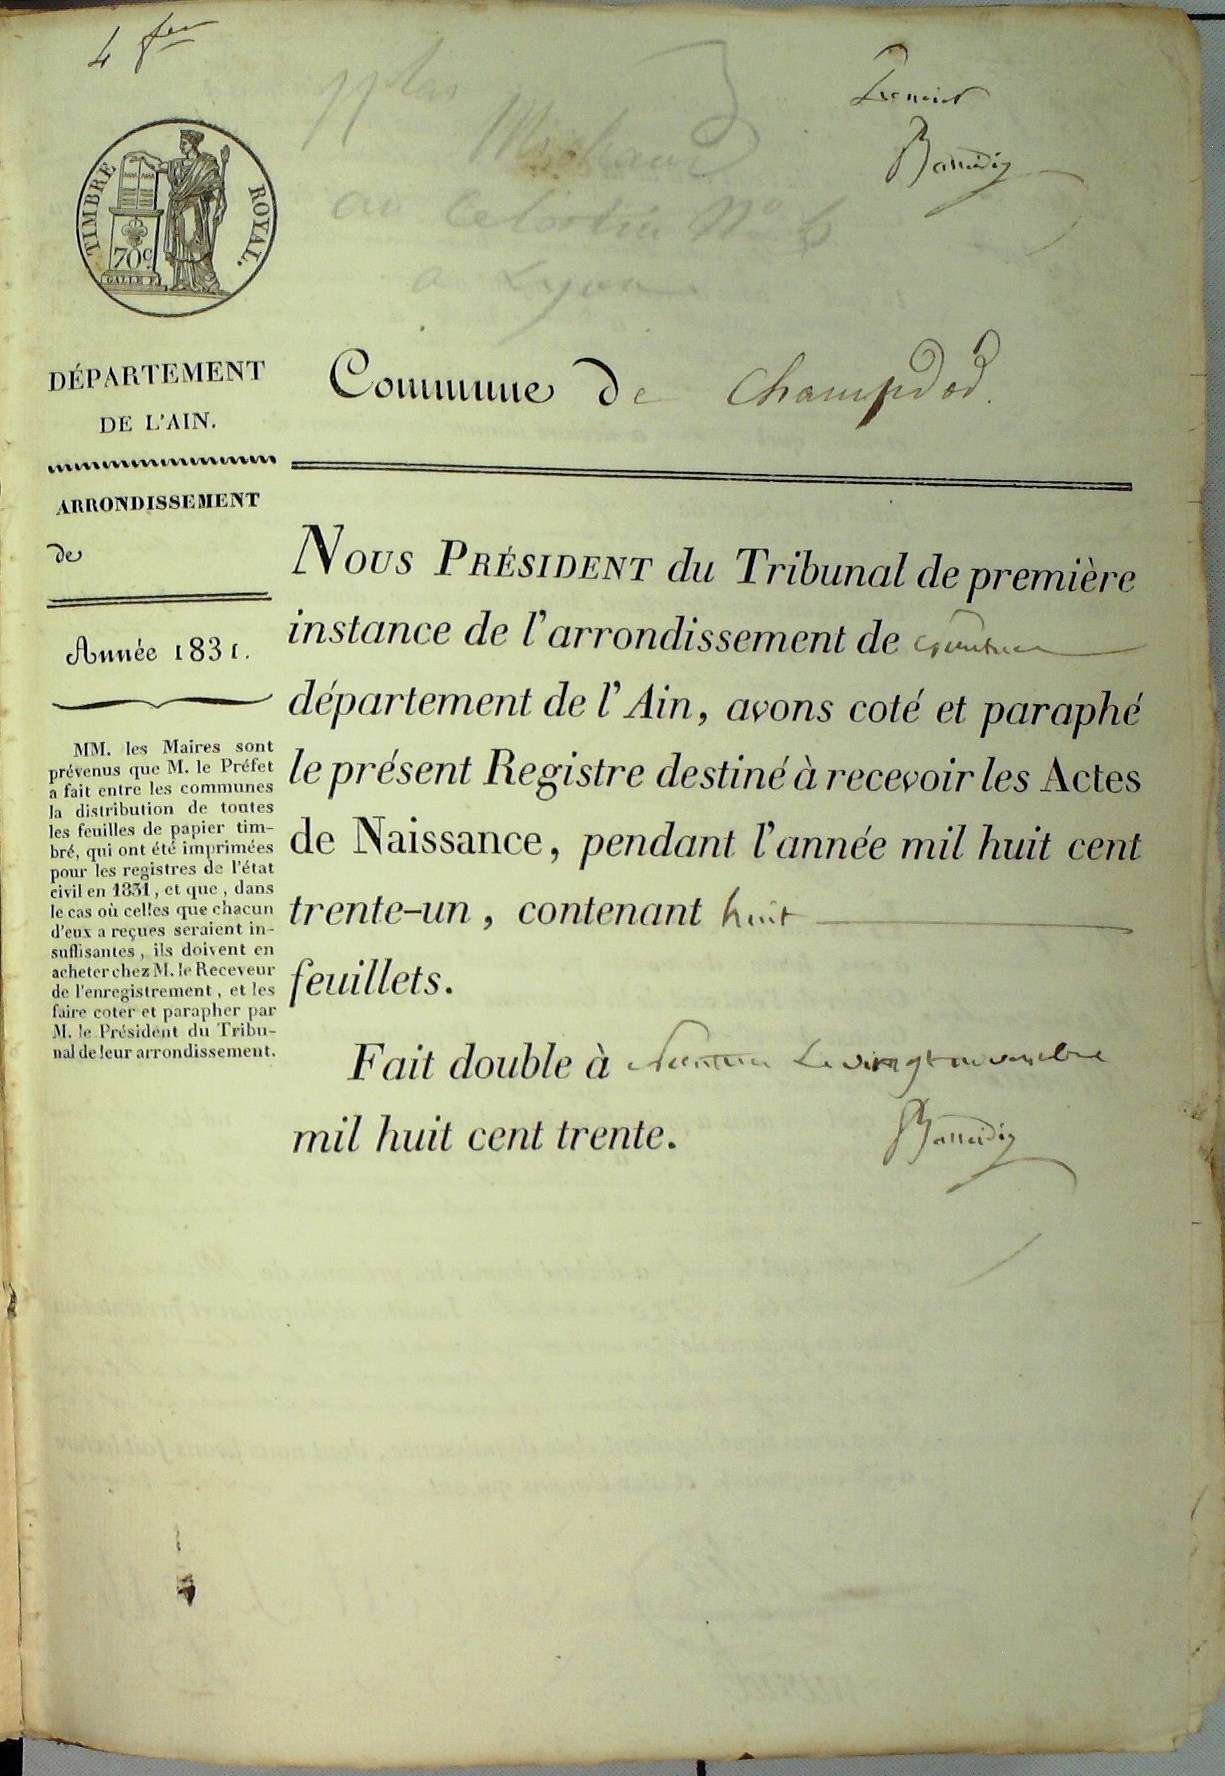 4 fer
Premier
Baudin
TIMBRE ROYAL.
70c.
GALLE F.
au Celestin No 6
a Lyon
DÉPARTEMENT
DE L'AIN.
Commune de Champdor.
ARRONDISSEMENT
de
Année 1831.
MM. les Maires sont
prévenus que M. le Préfet
a fait entre les communes
la distribution de toutes
les feuilles de papier tim-
bré, qui ont été imprimées
pour les registres de l'état
civil en 1831, et que, dans
le cas où celles que chacun
d'eux a reçues seraient in-
suffisantes, ils doivent en
acheter chez M. le Receveur
de l'enregistrement, et les
faire coter et parapher par
M. le Président du Tribu-
nal de leur arrondissement.
NOUS PRÉSIDENT du Tribunal de première
instance de l'arrondissement de Nantua
département de l'Ain, avons coté et paraphé
le présent Registre destiné à recevoir les Actes
de Naissance, pendant l'année mil huit cent
trente-un, contenant huit
feuillets.
Fait double à Nantua Le vingt novembre
mil huit cent trente.